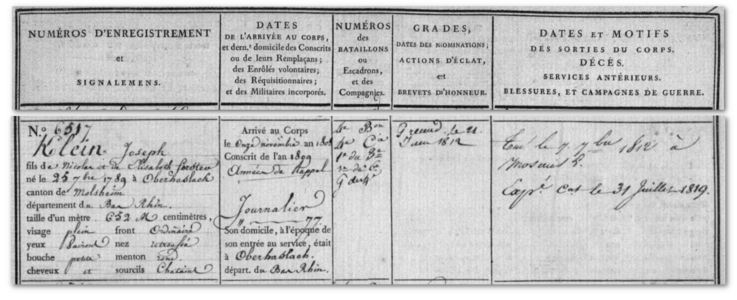 NUMÉROS D'ENREGISTREMENT
et
SIGNALEMENS.
DATES
DE L'ARRIVÉE AU CORPS,
et dern.r domicile des Conscrits
ou de leurs Remplaçans;
des Enrôlés volontaires;
des Réquisitionnaires;
et des Militaires incorporés.
NUMÉROS
DES
BATAILLONS
ou
Escadrons,
et des
Compagnies.
GRADES,
DATES DES NOMINATIONS,
ACTIONS D'ÉCLAT,
et
BREVETS D'HONNEUR.
DATES ET MOTIFS
DES SORTIES DU CORPS.
DÉCÈS.
SERVICES ANTÉRIEURS.
BLESSURES, ET CAMPAGNES DE GUERRE.
N.o 6517
Klein Joseph
fils de Nicolas et de Elisabeth
né le 25 7bre 1789 à Oberhaslach
canton de Molsheim
département du Bas Rhin
taille d'un mètre 652 M centimètres,
visage plein front Ordinaire
yeux nez
bouche menton rond
cheveux et sourcils Chatains
Arrivé au Corps
le Onze novembre an 1808
Conscrit de l'an 1809
Année de Rappel
Journalier
77.
Son domicile, à l'époque de
son entrée au service, était
à Oberhaslach
départ. du Bas Rhin.
4e Bon
4e Cie
Grenad. le 21
Juin 1812
Tué le 7 7bre 1812 à
Capre cat le 31 Juillet 1819.